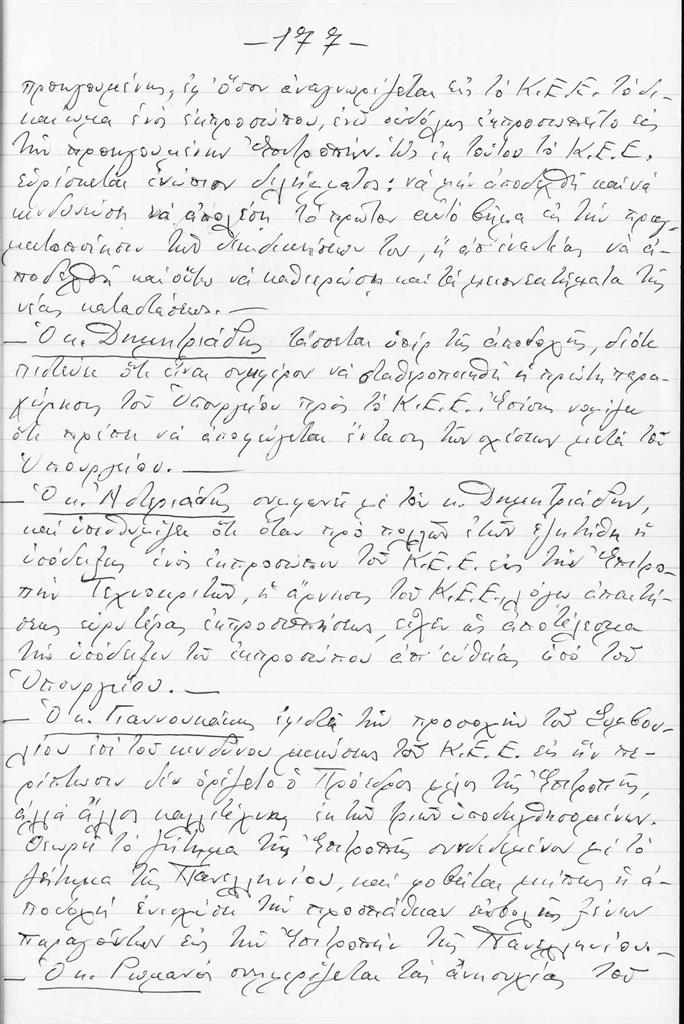 – 177 –
προηγουμένης, ἐφ' ὅσον ἀναγνωρίζεται εἰς τὸ Κ.Ε.Ε. τὸ δι-
καίωμα ἑνὸς ἐκπροσώπου, ἐνῶ οὐδόλως ἐκπροσωπεῖτο εἰς
τὴν προηγουμένην Ἐπιτροπήν. Ὡς ἐκ τούτου τὸ Κ.Ε.Ε.
εὑρίσκεται ἐνώπιον διλήμματος: νὰ μὴν ἀποδεχθῇ καὶ νὰ
κινδυνεύσῃ νὰ ἀπολέσῃ τὸ πρῶτον αὐτὸ βῆμα εἰς τὴν πραγ-
ματοποίησιν τῶν διεκδικήσεών του, ἢ ἀπ' ἐναντίας νὰ ἀ-
ποδεχθῇ καὶ οὕτω νὰ καθιερώσῃ καὶ τὰ μειονεκτήματα τῆς
νέας καταστάσεως. –
– Ὁ κ. Δημητριάδης τάσσεται ὑπὲρ τῆς ἀποδοχῆς, διότι
πιστεύει ὅτι εἶναι συμφέρον νὰ σταθεροποιηθῇ ἡ πρώτη παρα-
χώρησις τοῦ Ὑπουργείου πρὸς τὸ Κ.Ε.Ε. Ἐπίσης νομίζει
ὅτι πρέπει νὰ ἀποφεύγεται ἔντασις τῶν σχέσεων μετὰ τοῦ
Ὑπουργείου. –
– Ὁ κ. Ἀστεριάδης συμφωνεῖ μὲ τὸν κ. Δημητριάδην,
καὶ ὑπενθυμίζει ὅτι ὅταν πρὸ πολλῶν ἐτῶν ἐζητήθη ἡ
ὑπόδειξις ἑνὸς ἐκπροσώπου τοῦ Κ.Ε.Ε. εἰς τὴν Ἐπιτρο-
πὴν Τεχνοκριτῶν, ἡ ἄρνησις τοῦ Κ.Ε.Ε., λόγῳ ἀπαιτή-
σεως εὐρυτέρας ἐκπροσωπήσεως, εἶχεν ὡς ἀποτέλεσμα
τὴν ὑπόδειξιν τοῦ ἐκπροσώπου ἀπ' εὐθείας ὑπὸ τοῦ
Ὑπουργείου. –
– Ὁ κ. Γιαννουκάκης ἐφιστᾷ τὴν προσοχὴν τοῦ Συμβου-
λίου ἐπὶ τοῦ κινδύνου μειώσεως τοῦ Κ.Ε.Ε. εἰς ἣν πε-
ρίπτωσιν δὲν ὁρίζετο ὁ Πρόεδρος μέλος τῆς Ἐπιτροπῆς,
ἀλλὰ ἄλλος καλλιτέχνης ἐκ τῶν τριῶν ὑποδειχθησομένων.
Θεωρεῖ τὸ ζήτημα τῆς Ἐπιτροπῆς συνδεδεμένον μὲ τὸ
ζήτημα τῆς Πανελληνίου, καὶ φοβεῖται μήπως ἡ ἀ-
ποδοχὴ ἐνισχύσῃ τὴν προσπάθειαν εἰσβολῆς ξένων
παραγόντων εἰς τὴν Ἐπιτροπὴν τῆς Πανελληνίου. –
– Ὁ κ. Ρωμανὸς συμμερίζεται τὰς ἀνησυχίας τοῦ